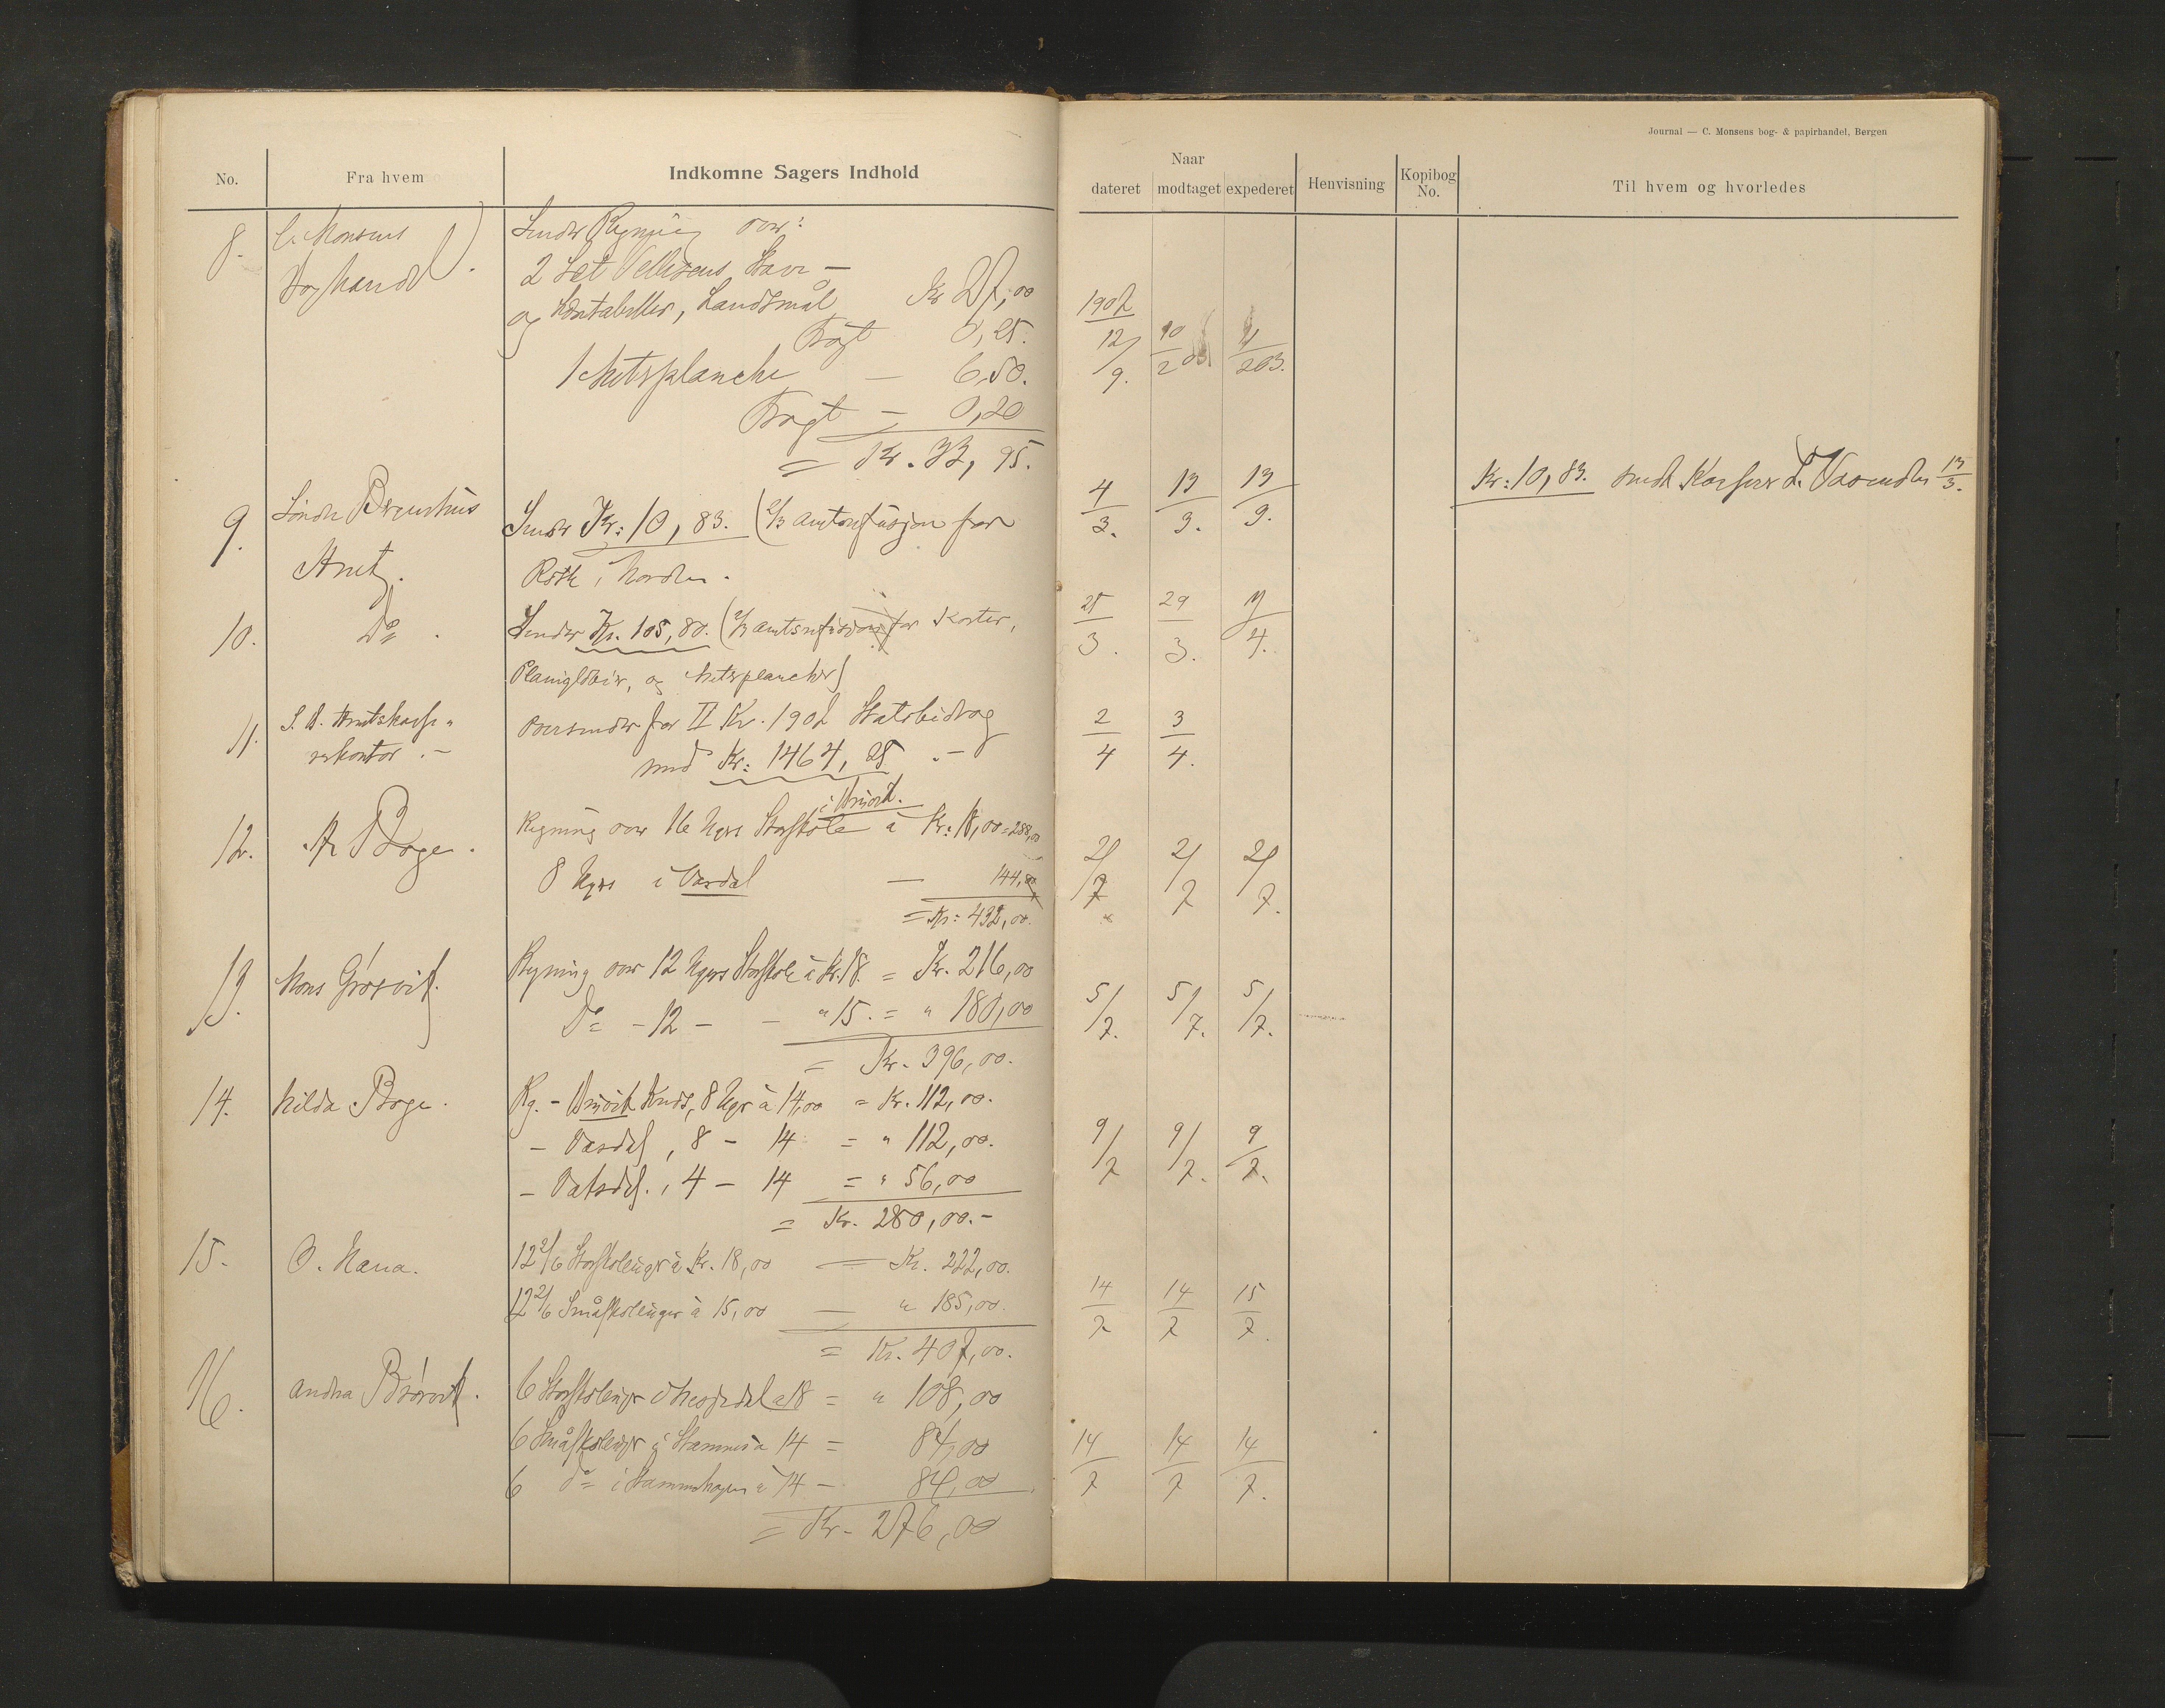 Journal — C. Monsens bog- & papirhandel, Bergen
No.
Fra hvem
Indkomne Sagers Indhold
Naar
dateret
modtaget
expederet
Henvisning
Kopibog No.
Til hvem og hvorledes
8. C. Monsens Boghandel.
Sender Regning over:
2 Set Stave-
og Læsetabeller, Landsmål Kr 27,00
Fragt 0,25.
1 — 6,50.
Fragt — 0,20
= Kr. 33,95.
1902
12/9. 10/2 03 11/2 03.
9. Søndre Bergenhus Amt.
Sender Kr: 10,83. (2/3 for
i Norden.
4/3. 13/3. 13/3.
Kr: 10,83. sendt Kasserer L. 13/3.
10. Do.
Sender Kr. 105,80. (2/3 for Karter,
Planiglober, og
25/3. 29/3. 4.
11. S. B. Amtskasse-
rerkontor.-
Oversender for II Kv. 1902 Statsbidrag
med Kr: 1464,25.-
2/4 3/4.
12. A Boge.
Regning over 16 Ugers Storskole à Kr: 18,00=288,00
8 Ugers i Vasdal — 144,00
= Kr: 432,00.
21/7 21/7 21/7.
13. Mons
Regning over 12 Ugers Storskole à Kr. 18. = Kr. 216,00
Do - 12 - - " 15. = " 180,00
= Kr. 396,00.
5/7. 5/7. 5/7.
14. Hilda Boge.
Rg. - Kreds, 8 Uger à 14,00 = Kr. 112,00.
- Vasdal, 8 - 14 = " 112,00.
- 4 - 14 = " 56,00
= Kr. 280,00.-
9/7 9/7. 9/7.
15. O. Nana.
12 2/6 Storskleuger à Kr. 18,00 — Kr. 222,00.
12 2/6 Småskoleuger à 15,00 — " 185,00.
= Kr. 407,00.
14/7 14/7 15/7.
16. Andrea
6 Storskoleuger i à 18 = " 108,00
6 Småskoleuger i Stamnes à 14 = 84,00
6 do i à 14 - 84,00
= Kr. 276,00
14/7 14/7 14/7.